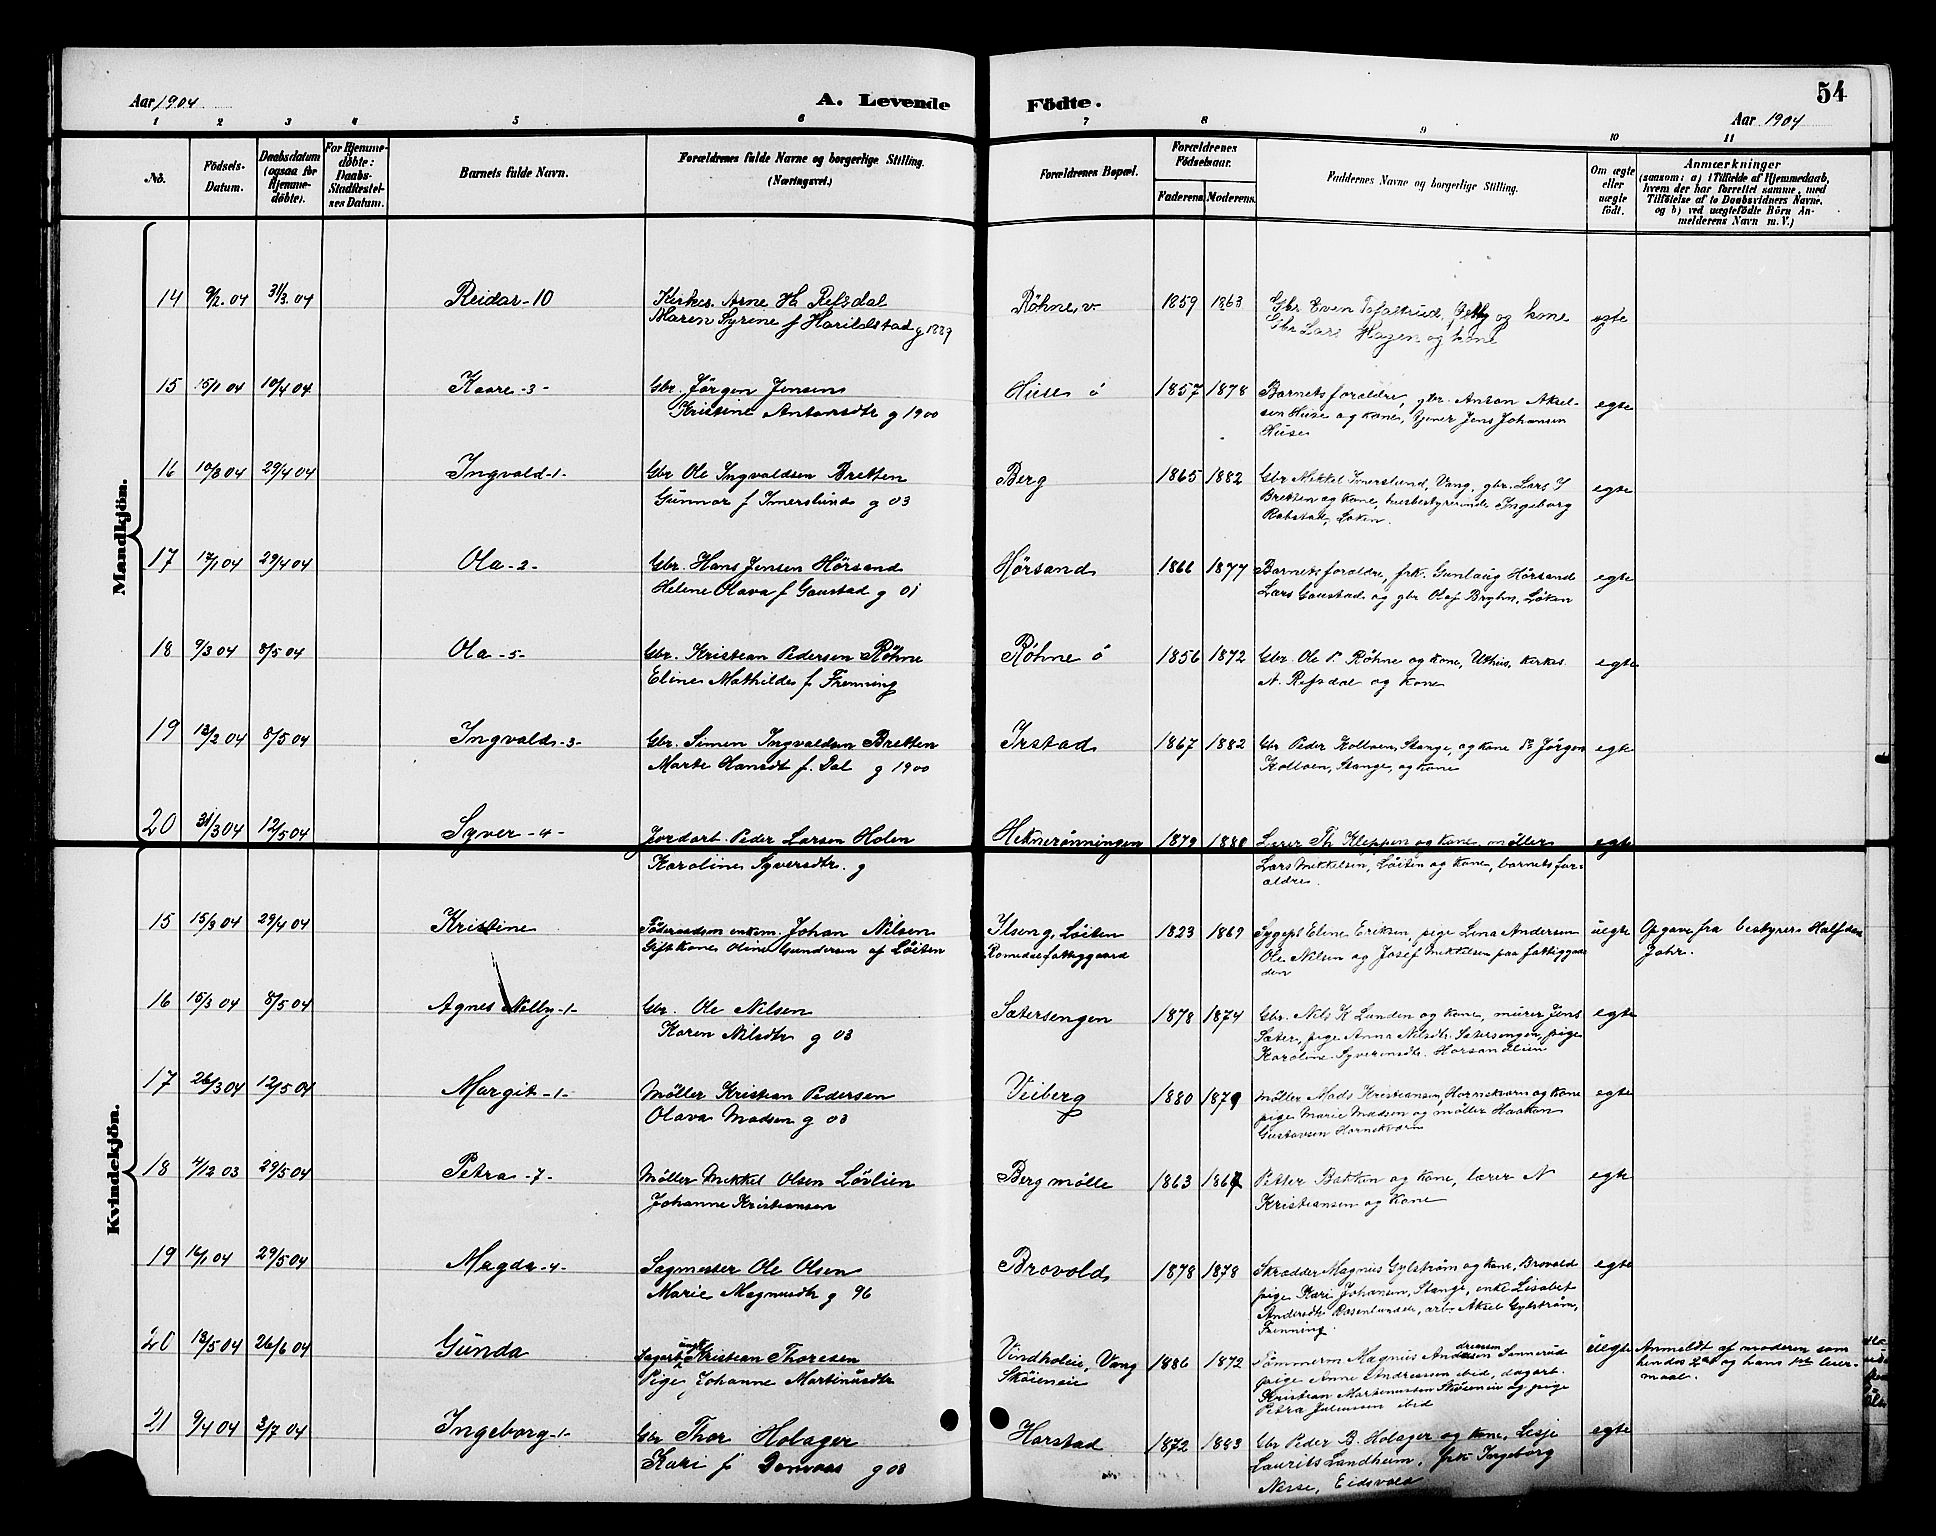 54
Aar 1904
A. Levende
Födte.
Aar 1904
1 2 3 4 5 6 7 8 9 10 11
No.
Födsels-
Datum.
Daabsdatum
(ogsaa for
Hjemme-
döbte).
For Hjemme-
döbte:
Daabs-
Stadfæstel-
ses Datum.
Barnets fulde Navn.
Forældrenes fulde Navne og borgerlige Stilling.
(Næringsvei.)
Forældrenes Bopæl.
Forældrenes
Födselsaar.
Faderens
Moderens
Faddernes Navne og borgerlige Stilling.
Om ægte
eller
uægte
født.
Anmærkninger
(saasom: a) i Tilfælde af Hjemmedaab,
hvem der har forrettet samme, med
Tilföielse af to Daabsvidners Navne,
og b) ved uægtefödte Börn An-
melderens Navn m. V.)
Mandkjön.
14 9/2 04 31/3 04 Reidar -10 Kirkes. Arne H. Refsdal Røhne, v. 1859 1863 Gbr Even Tofastrud, og kone egte
Maren Syrine f Harildstad g 1889 Gbr Lars Hagen og kone
15 15/1 04 10/4 04 Kaare -3- Gbr. Jørgen Jensen Huse ö 1857 1878 Barnets forældre, gbr. Anton Aksel- egte
Kristine Antonsdtr g 1900 sen Huse og kone, tjener Jens Johansen
Huse
16 10/3 04 29/4 04 Ingvald -1- Gbr Ole Ingvaldsen Bretten Berg 1865 1882 Gbr Mikkel Imerslund, Vang, gbr. Lars I egte
Gunnor f Imerslund g 03 Bretten og kone, husbestyrerinde Ingeborg
Robstad, Løken.
17 17/1 04 29/4 04 Ola -2- Gbr. Hans Jensen Hørsand Hørsand 1866 1877 Barnets forældre, frk. Gunlaug Hørsand egte
Helene Olava f Gaustad g 01 Lars Gaustad og gbr Olaf Bryhn, Løken
18 9/3 04 8/5 04 Ola -5- Gbr. Kristian Pedersen Røhne Røhne ö 1856 1872 Gbr. Ole P. Røhne og kone, Uthus, kirkes. egte
Eline Mathilde f Frenning A. Refsdal og kone
19 13/2 04 8/5 04 Ingvald -3- Gbr. Simen Ingvaldsen Bretten Irstad 1867 1882 Gbr Peder Kolloen, Stange, og kone Jørgen egte
Marte Hansdt f. Dal g 1900 Kolloen, Stange, og kone
20 31/3 04 12/5 04 Syver -4- Jordarb. Peder Larsen Holen Heknerønningen 1879 1880 Lærer Th. Kleppen og kone, møller egte
Karoline Syversdtr. g Lars Mikkelsen, Löiten og kone, barnets for-
ældre.
Kvindekjön.
15 15/3 04 29/4 04 Kristine Føderaadsm enkem. Johan Nilsen Ilseng, Løiten 1823 1869 Sygepl Eline Eriksen, pige Lina Andersen uegte Opgave fra bestyrer Halfdan
Gift kone Oline Gundersen af Løiten Romedal fattiggaard Ole Nilsen og Josef Mikkelsen paa fattiggaar- Johr.
den
16 15/3 04 8/5 04 Agnes Nelly -1- Gbr. Ole Nilsen Sætersengen 1878 1874 Gbr. Nils K Lunden og kone, murer Jens egte
Karen Nilsdtr g 03 Sæter, pige Anna Nilsdtr Sætersengen, pige
Karoline Syverinsdtr. Horsandlien
17 26/3 04 12/5 04 Margit -1- Møller Kristian Pedersen Viberg 1880 1879 Møller Mads Kristiansen, Hornekvern og kone egte
Olava Madsen g 03 pige Marie Madsen og møller Haakon
Gustavsen Hornekvern
18 4/12 03 29/5 04 Petra -7- Møller Mikkel Olsen Løvlien Berg mølle 1863 1867 Petter Bakken og kone, lærer N egte
Johanne Kristiansen Kristiansen og kone
19 16/1 04 29/5 04 Magda -4- Sagmester Ole Olsen Brovold 1878 1878 Skrædder Magnus Gylstrøm og kone, Brovold egte
Marie Magnusdtr g 96 pige Kari Johansen, Stange, enke Lisabet
Andersdtr Rosenlund, arb Aksel Gylstrøm,
Frenning.
20 18/5 04 26/6 04 Gunda Sagarb ungk Kristian Thoresen Vindholeie, Vang 1886 1872 Tømmerm Magnus Andreasen Sannerud uegte Anmeldt af moderen som
Pige Johanne Martinusdtr Skøieneie pige Anne Andreassen ibid, dagarb. hendes 2det og hans 1ste leier-
Kristian Martinussen Skøieneie og pige maal.
Petra Juliussen ibid
21 9/4 04 3/7 04 Ingeborg -1- Gbr Thor Holager Horstad 1872 1883 Gbr Peder B. Holager og kone, Lisje egte
Kari f g 03 Laurits Landheim, frk Ingeborg
Nesse, Eidsvold